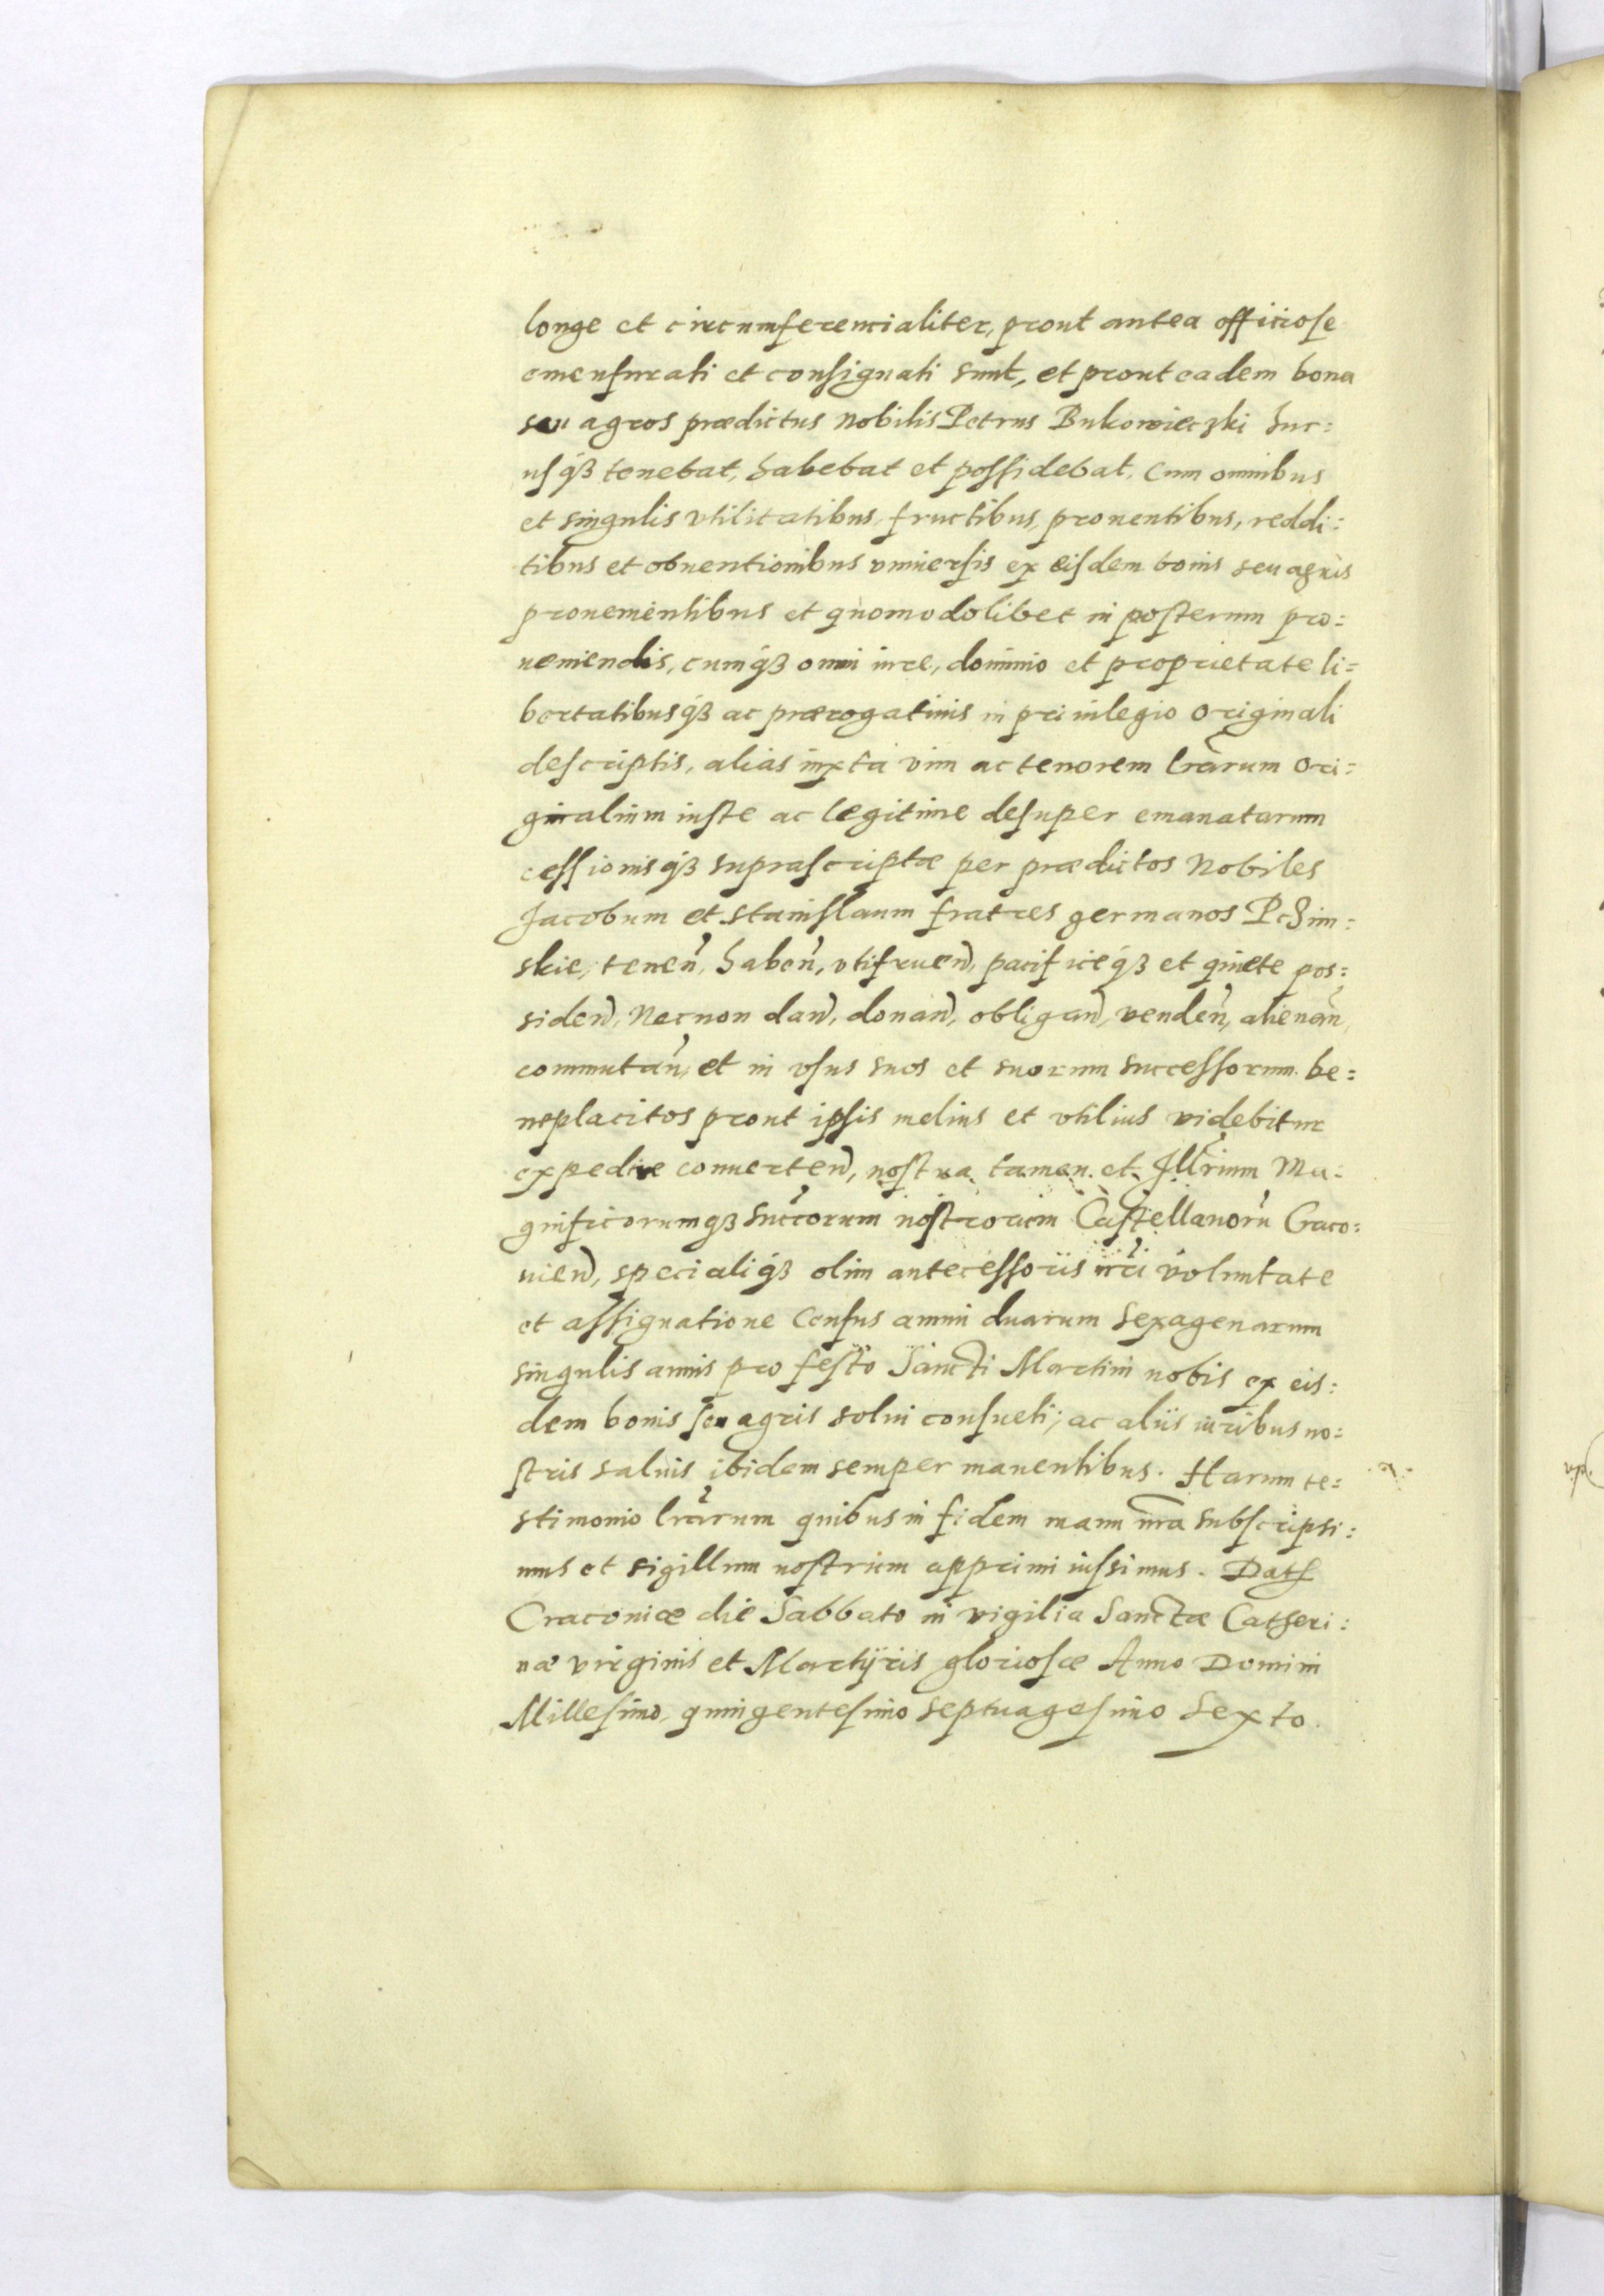 longe et circumferencialiter, prout antea officiose
emensurati et consignati sunt, et prout eadem bona
seu agros prædictus Nobilis Petrus Bukowieczki huc:
usq́ꝫ tenebat, habebat et possidebat. Cum omnibus
et singulis vtilitatibus, fructibus, prouentibus, reddi:
tibus et obuentionibus vniuersis ex eisdem bonis seu agris
prouenientibus et quomodolibet in posterum pro:
ueniendis, cumq́ꝫ omni iure, dominio et proprietate li=
bertatibusq́ꝫ ac prærogatiuis in priuilegio originali
descriptis, alias iuxta vim ac tenorem l̃rarum Ori:
ginalium iuste ac legitime desuper emanatarum
cessionisq́ꝫ suprascriptæ per prædictos Nobiles
Jacobum et Stanislaum fratres germanos Pczim:
skie, tenen̄, haben̄, vtifruen̄, pacificeq́ꝫ et quiete pos:
siden̄, Necnon dan̄, donan̄, obligan̄, venden̄, alienan̄,
commutan̄, et in vsus suos et suorum successorum be:
neplacitos prout ipsis melius et vtilius videbitur
expedire conuerten̄, nostra tamen et Ill̃rium Ma:
gnificorumqꝫ succ̃orum nostrorum Castellanorũ Craco:
uien̄, specialiq́ꝫ olim antecessoris nr̃i voluntate
et assignatione Census annui duarum Sexagenarum
singulis annis pro festo Sancti Martini nobis ex eis:
dem bonis seu agris solui consueti; ac aliis iuribus no:
stris saluis ibidem semper manentibus. Harum te:
stimonio l̃rarum quibus in fidem manu nr̃a subscripsi:
mus et sigillum nostrum apprimi iussimus. Dat̃
Cracouiæ die Sabbato in vigilia Sanctæ Catheri:
næ virginis et Martÿris gloriosæ Anno Domini
Millesimo quingentesimo Septuagesimo Sexto.